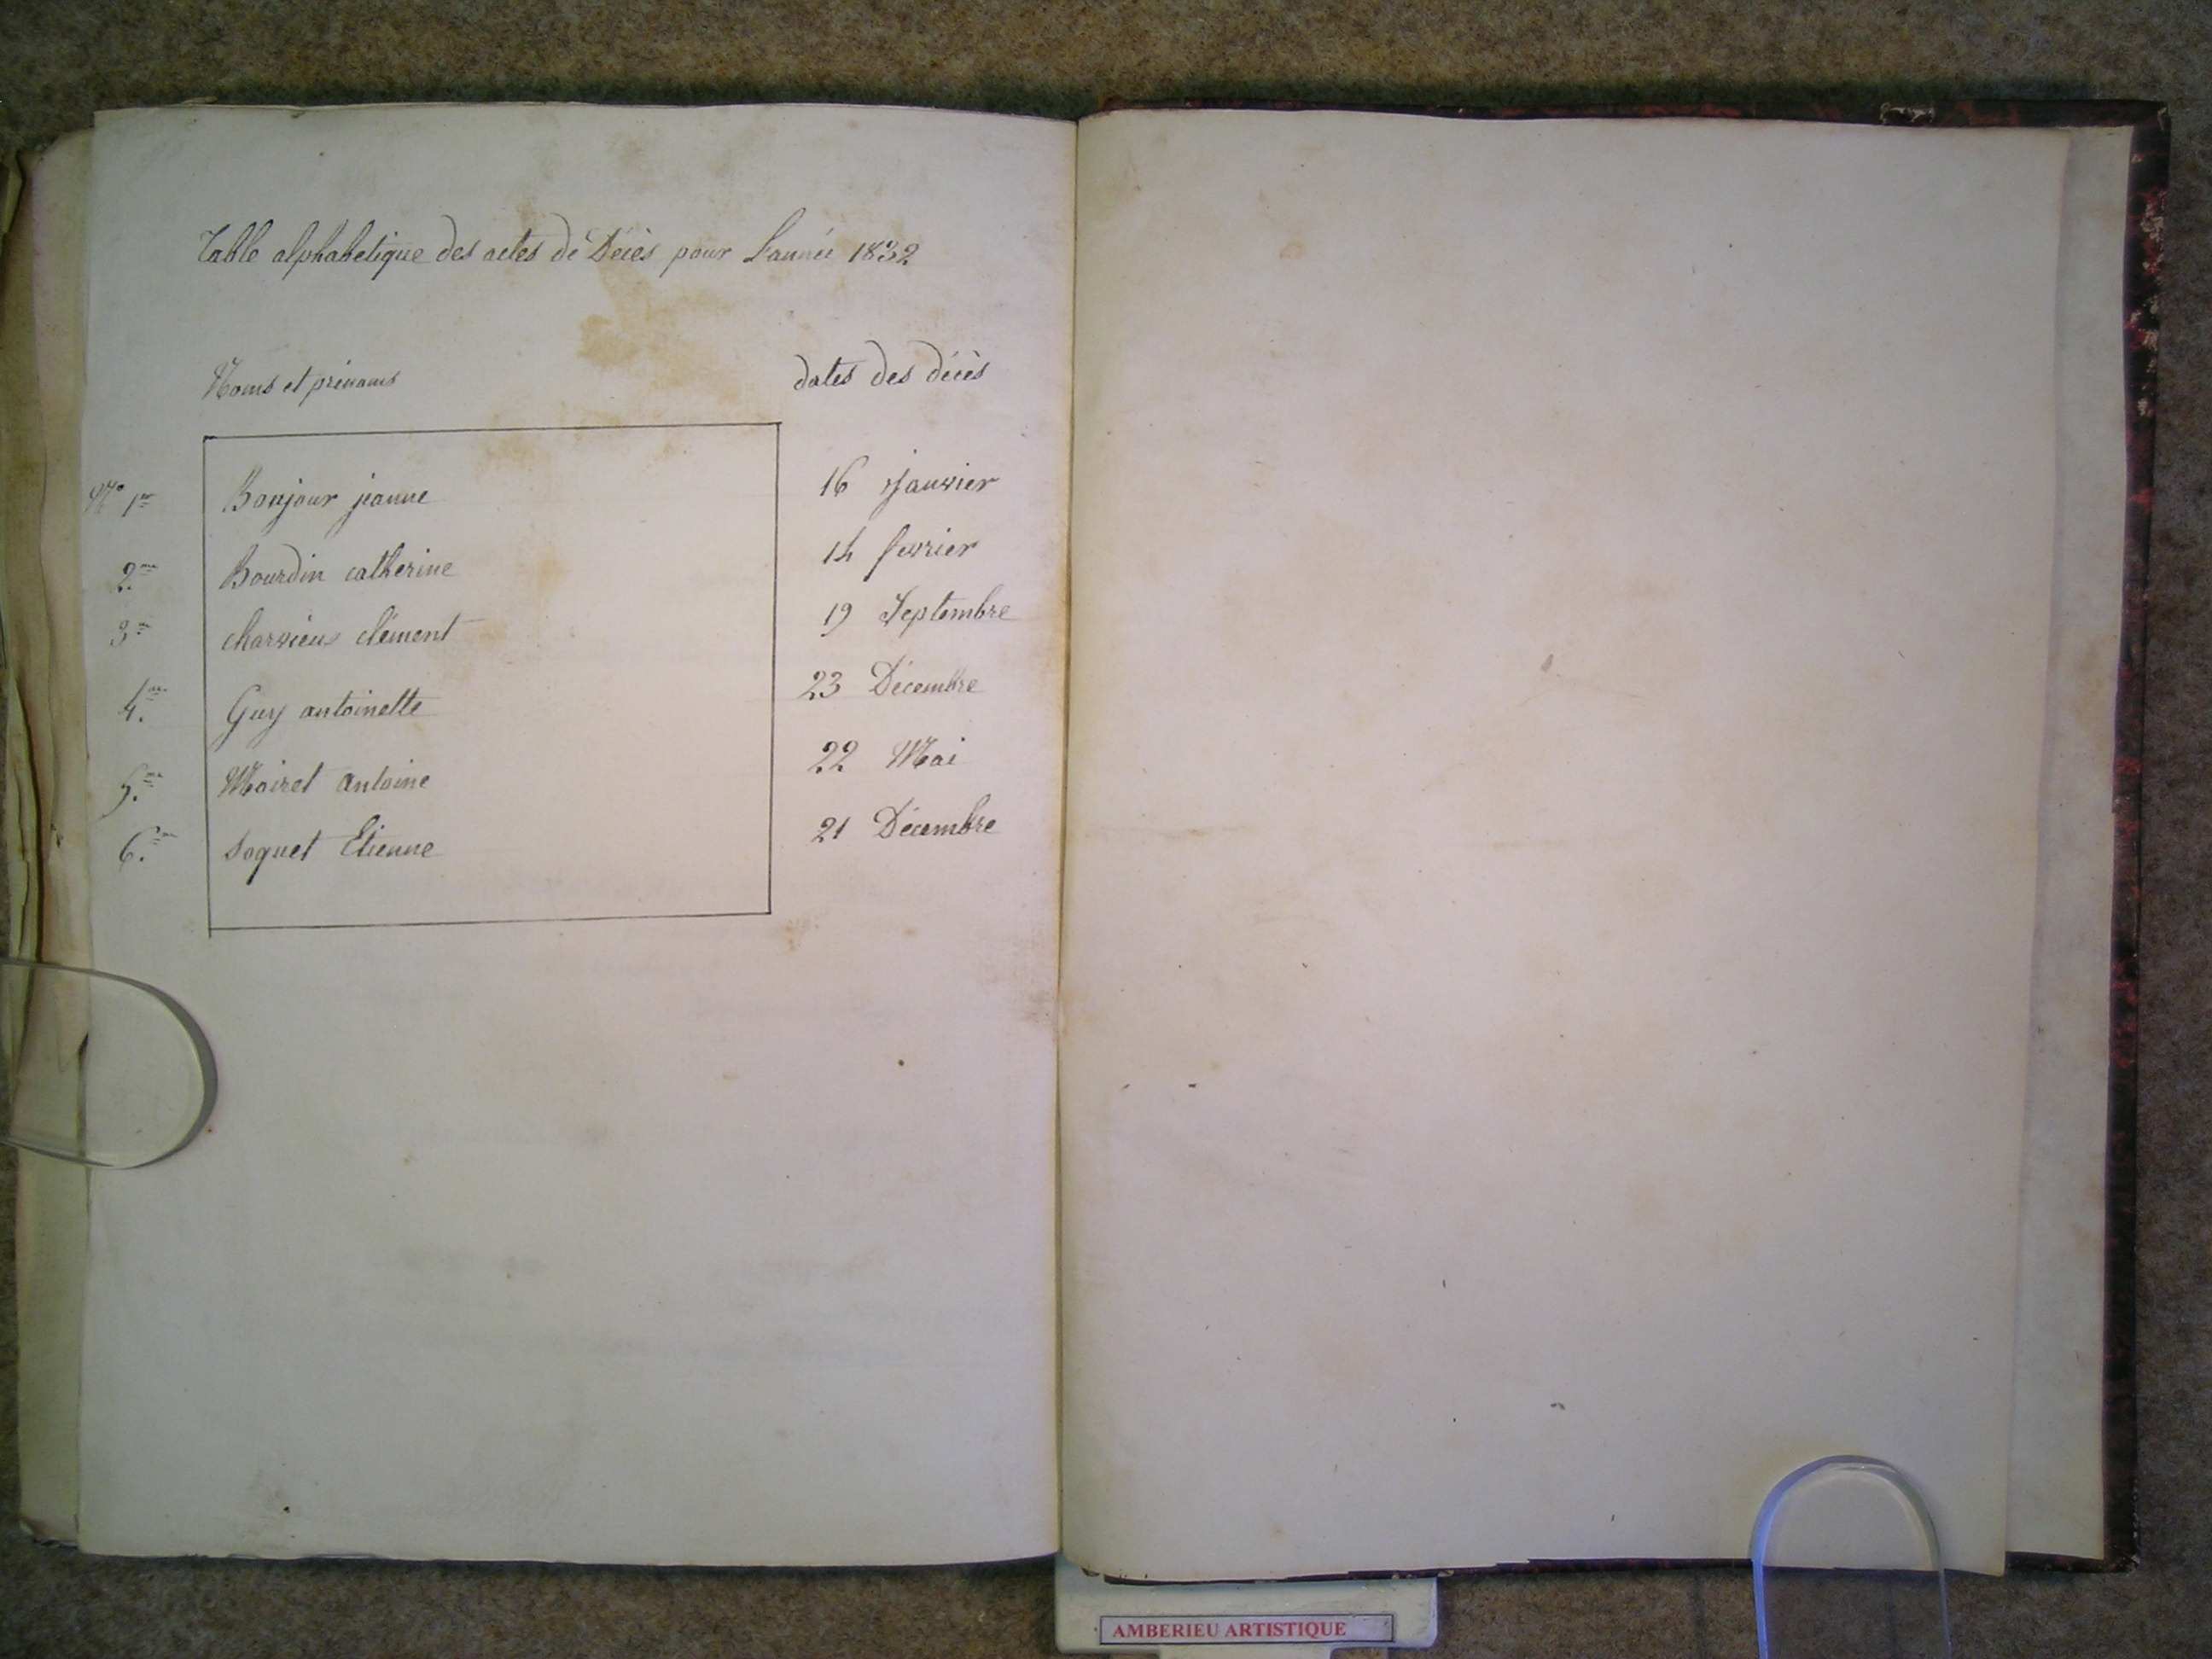 Table alphabetique des actes de Décès pour L'année 1832
Noms et prénoms dates des décès
N° 1er Bonjour jeanne 16 Janvier
2.me Bourdin catherine 14 fevrier
3me charvieux clément 19 Septembre
4.me Guy antoinette 23 Décembre
5.me Moiret antoine 22 Mai
6.me soquet Etienne 21 Décembre
AMBERIEU ARTISTIQUE